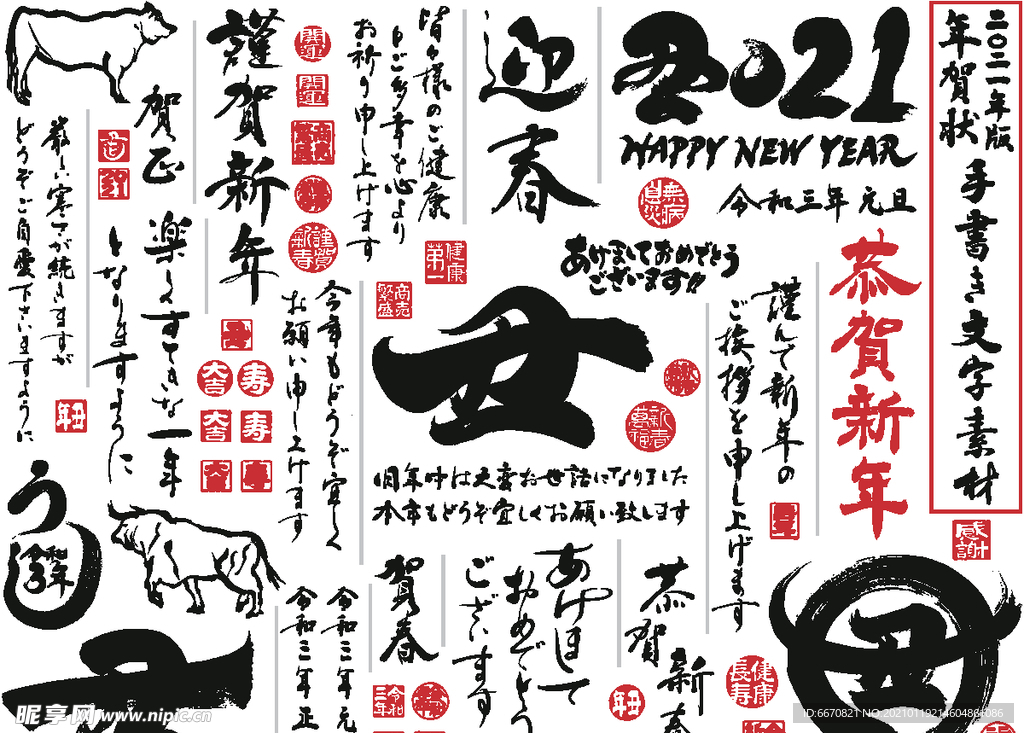 二〇二一年版
年賀状
手書き文字素材
丑2021
HAPPY NEW YEAR
令和三年 元旦
無病
息災
迎春
皆々様のご健康
とご多幸を心より
お祈り申し上げます
健康
第一
謹賀新年
開運
開運
商売
繁盛
謹賀
新春
賀正
厳しい寒さが続きますが
どうぞご自愛下さいますように
楽しくすてきな一年
となりますように
丑年
大吉
寿
大吉
寿
大吉
寿
今年もどうぞ宜しく
お願い申し上げます
商売
繁盛
あけましておめでとう
ございます!!
丑
新春
萬福
旧年中は大変お世話になりました
本年もどうぞ宜しくお願い致します
謹んで新年の
ご挨拶を申し上げます
恭賀新年
感謝
うし
令和
3年
令和三年 元
令和三年 正
賀春
令和
三年
あけまして
おめでとう
ございます
恭賀
新春
丑年
健康
長寿
丑
昵享网 www.nipic.cn
ID:6670821 NO:20210119214604866086